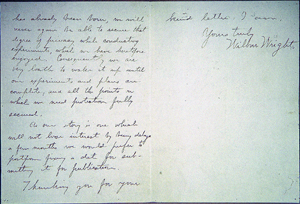 has already been born, we will
never again be able to secure that
degree of privacy, which conducting
experiments, which we have heretofore
enjoyed. Consequently we are
very to wake it up until
our experiments and plans are
complete, and all the points on
which we need protection fully
secured.
As our story is one which
will not lose interest by being delayed
a few months we would prefer to
postpone fixing a date for sub-
mitting it for publication.
Thanking you for your
kind letter, I am,
Yours truly
Wilbur Wright.